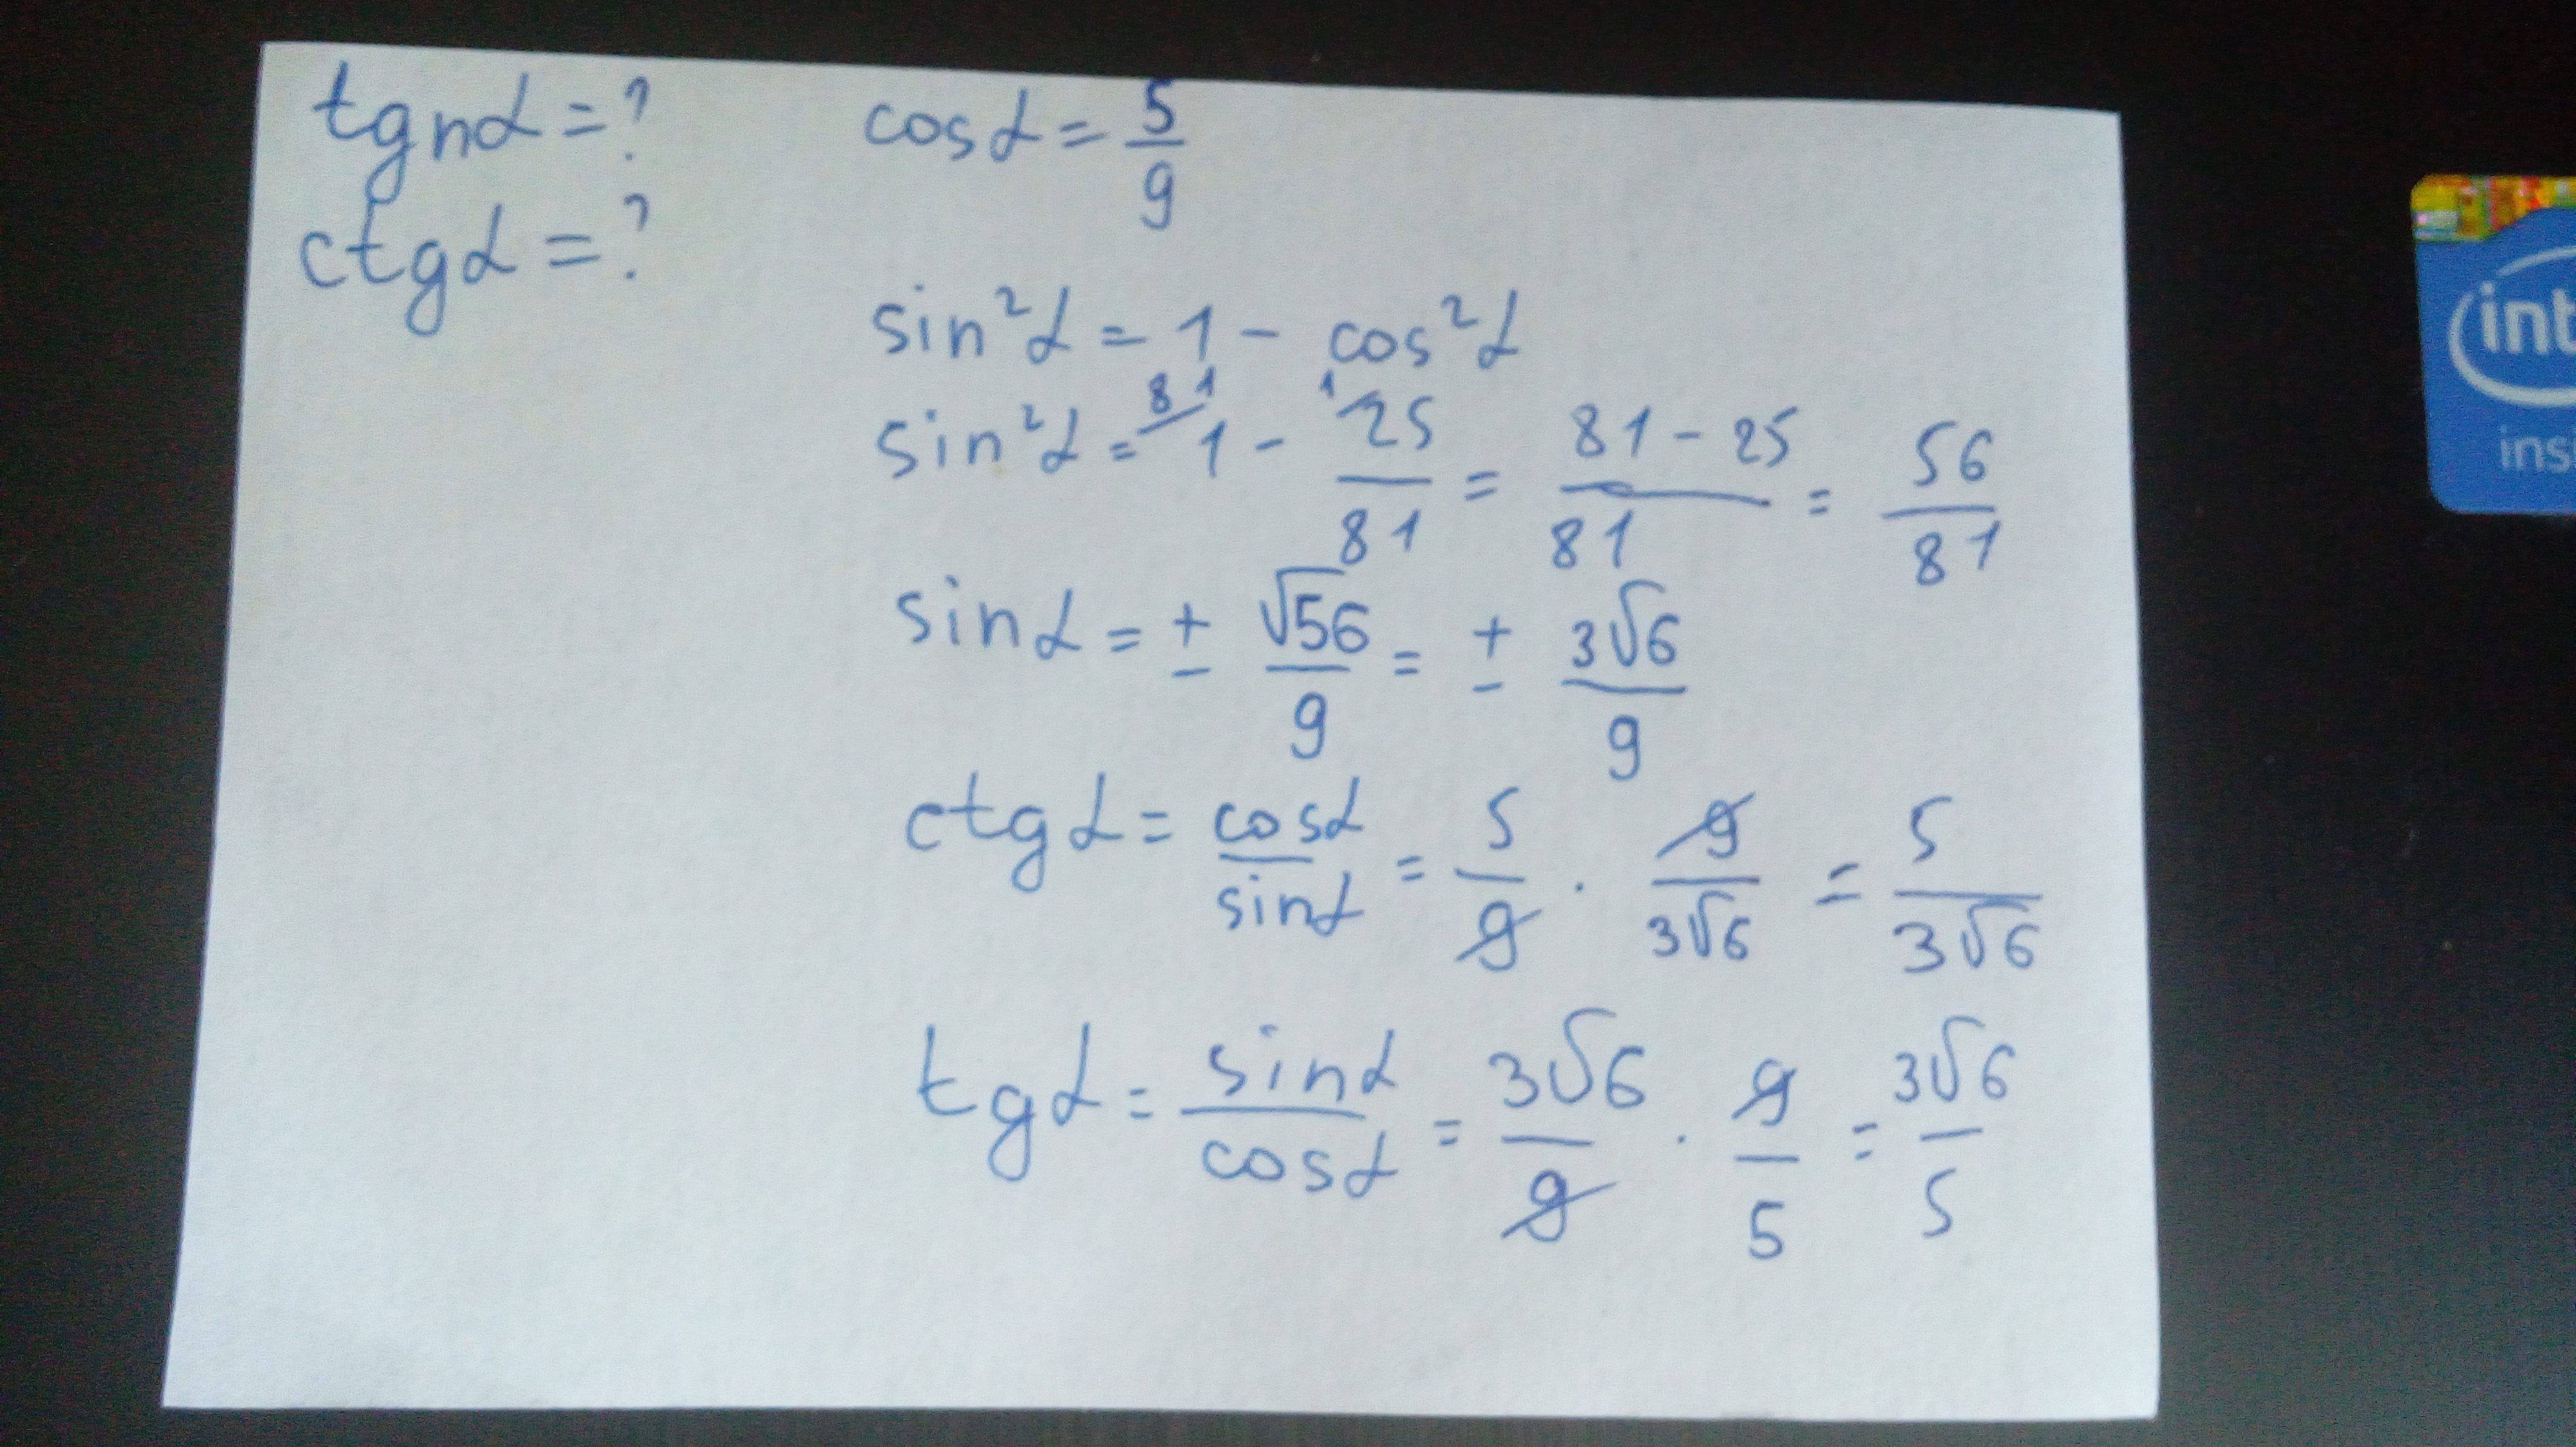 tgnα = ?
ctgα = ?
cosα = 5/9
sin²α = 1 - cos²α
sin²α = ⁸¹/1 - ¹/25/81 = 81 - 25/81 = 56/81
sinα = ± √56/9 = ± 3√6/9
ctgα = cosα/sinα = 5/9 · 9/3√6 = 5/3√6
tgα = sinα/cosα = 3√6/9 · 9/5 = 3√6/5
int
insi